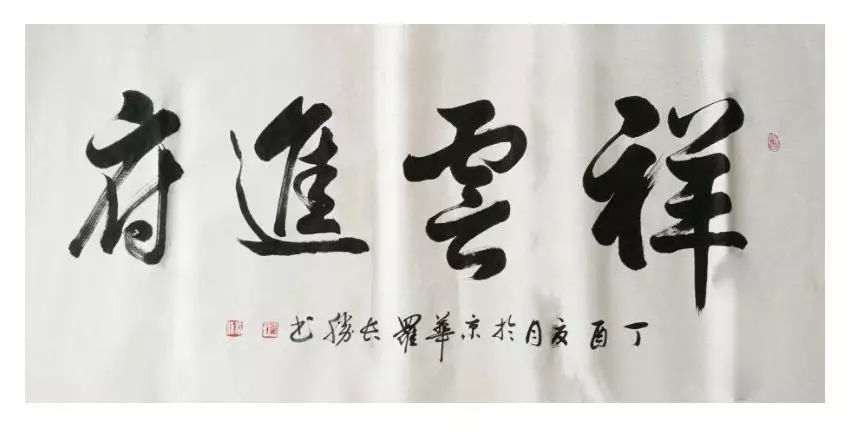 祥雲進府
丁酉夏月於京華羅長勝书